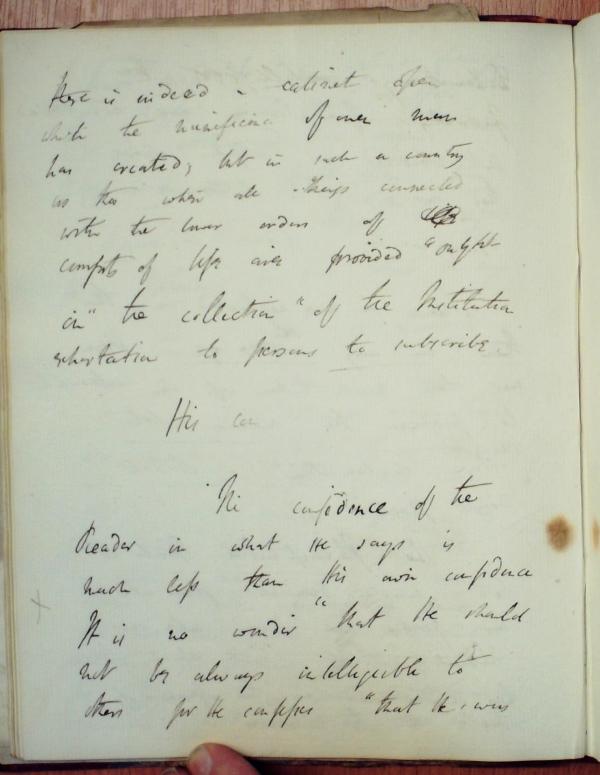 Here is indeed a cabinet open
which the munificence of men
has created; but in such a country
as this where all things connected
with the lower orders of
comforts of life are provided "ought
in" the collection "of the Institution
exhortation to persons to subscribe.
His con
The confidence of the
Reader in what He says is
much less than His own confidence
It is no wonder "that He should
not be always intelligible to
others for He confesses "that He was